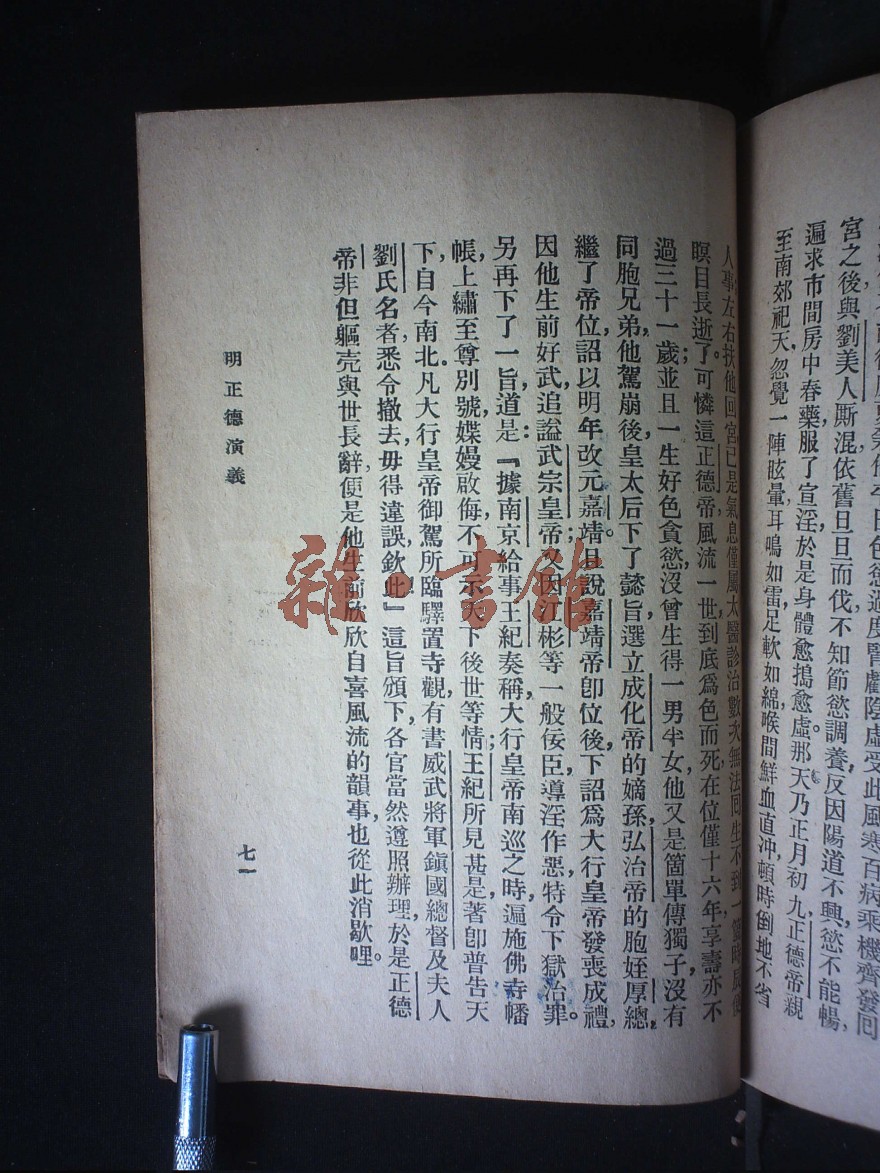 宮之後，與劉美人厮混，依舊旦旦而伐，不知節慾調養，反因陽道不興，慾不能暢，
遍求市間房中春藥，服了宣淫，於是身體愈搗愈虛。那天乃正月初九，正德帝親
至南郊祀天，忽覺一陣眩暈，耳鳴如雷，足軟如綿，喉間鮮血直沖，頓時倒地不省
人事，左右扶他回宮，已是氣息僅屬，太醫診治數次，無法回生，不到一個時辰，便
瞑目長逝了。可憐這正德帝風流一世，到底爲色而死，在位僅十六年，享壽亦不
過三十一歲；並且一生好色貪慾，沒曾生得一男半女，他又是箇單傳獨子，沒有
同胞兄弟，他駕崩後，皇太后下了懿旨，選立成化帝的嫡孫，弘治帝的胞姪厚總，
繼了帝位，詔以明年改元嘉靖。且說嘉靖帝卽位後，下詔爲大行皇帝發喪成禮，
因他生前好武，追謚武宗皇帝；又因江彬等一般佞臣，導淫作惡，特令下獄治罪。
另再下了一旨，道是：『據南京給事王紀奏稱，大行皇帝南巡之時，遍施佛寺幡
帳，上繡至尊別號，媟嫚啟侮，不可示天下後世等情；王紀所見甚是，著卽普告天
下，自今南北，凡大行皇帝御駕所臨，驛置寺觀，有書威武將軍鎭國總督及夫人
劉氏名者，悉令撤去，毋得違誤，欽此！』這旨頒下，各官當然遵照辦理，於是正德
帝非但軀壳與世長辭，便是他生前欣欣自喜風流的韻事，也從此消歇哩。
明正德演義
七一
雜書館